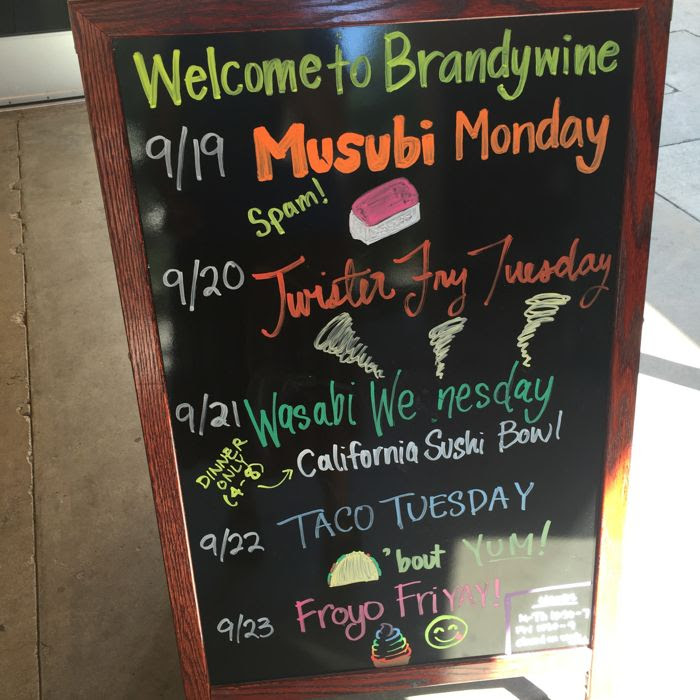 Welcome to Brandywine
9/19 Musubi Monday
Spam!
9/20 Twister Fry Tuesday
9/21 Wasabi We nesday
DINNER
ONLY
(4-8)
California Sushi Bowl
9/22 TACO TUESDAY
'bout YUM!
9/23 Froyo FriYAY!